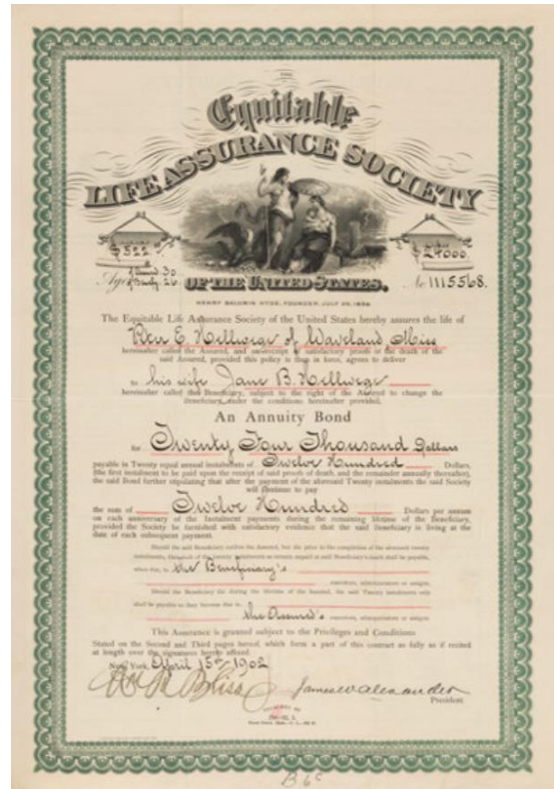 THE
Equitable
LIFE ASSURANCE SOCIETY
$522
$24000.
Age of Assured. 30
of Benfy. 26
OF THE UNITED STATES.
No 1115568.
HENRY BALDWIN HYDE, FOUNDER, JULY 26, 1859
The Equitable Life Assurance Society of the United States hereby assures the life of
E. Hellwege of Waveland Miss
hereinafter called the Assured, and on receipt of satisfactory proofs of the death of the
said Assured, provided this policy is then in force, agrees to deliver
to his wife Jane B. Hellwege
hereinafter called the Beneficiary, subject to the right of the Assured to change the
Beneficiary under the conditions hereinafter provided,
An Annuity Bond
for Twenty Four Thousand Dollars
payable in Twenty equal annual instalments of Twelve Hundred Dollars,
(the first instalment to be paid upon the receipt of said proofs of death, and the remainder annually thereafter),
the said Bond further stipulating that after the payment of the aforesaid Twenty instalments the said Society
will continue to pay
the sum of Twelve Hundred Dollars per annum
on each anniversary of the Instalment payments during the remaining lifetime of the Beneficiary,
provided the Society be furnished with satisfactory evidence that the said Beneficiary is living at the
date of each subsequent payment.
Should the said Beneficiary survive the Assured, but die prior to the completion of the aforesaid twenty
instalments, the of the twenty instalments as remain unpaid at said Beneficiary's death shall be payable,
when due, to the Beneficiary's
executors, administrators or assigns.
Should the Beneficiary die during the lifetime of the Assured, the said Twenty instalments only
shall be payable as they become due to
the Assured's executors, administrators or assigns.
This Assurance is granted subject to the Privileges and Conditions
Stated on the Second and Third pages hereof, which form a part of this contract as fully as if recited
at length over the signatures hereto affixed.
New York, April 15th 1902
Bliss
James W Alexander
President.
B.6c